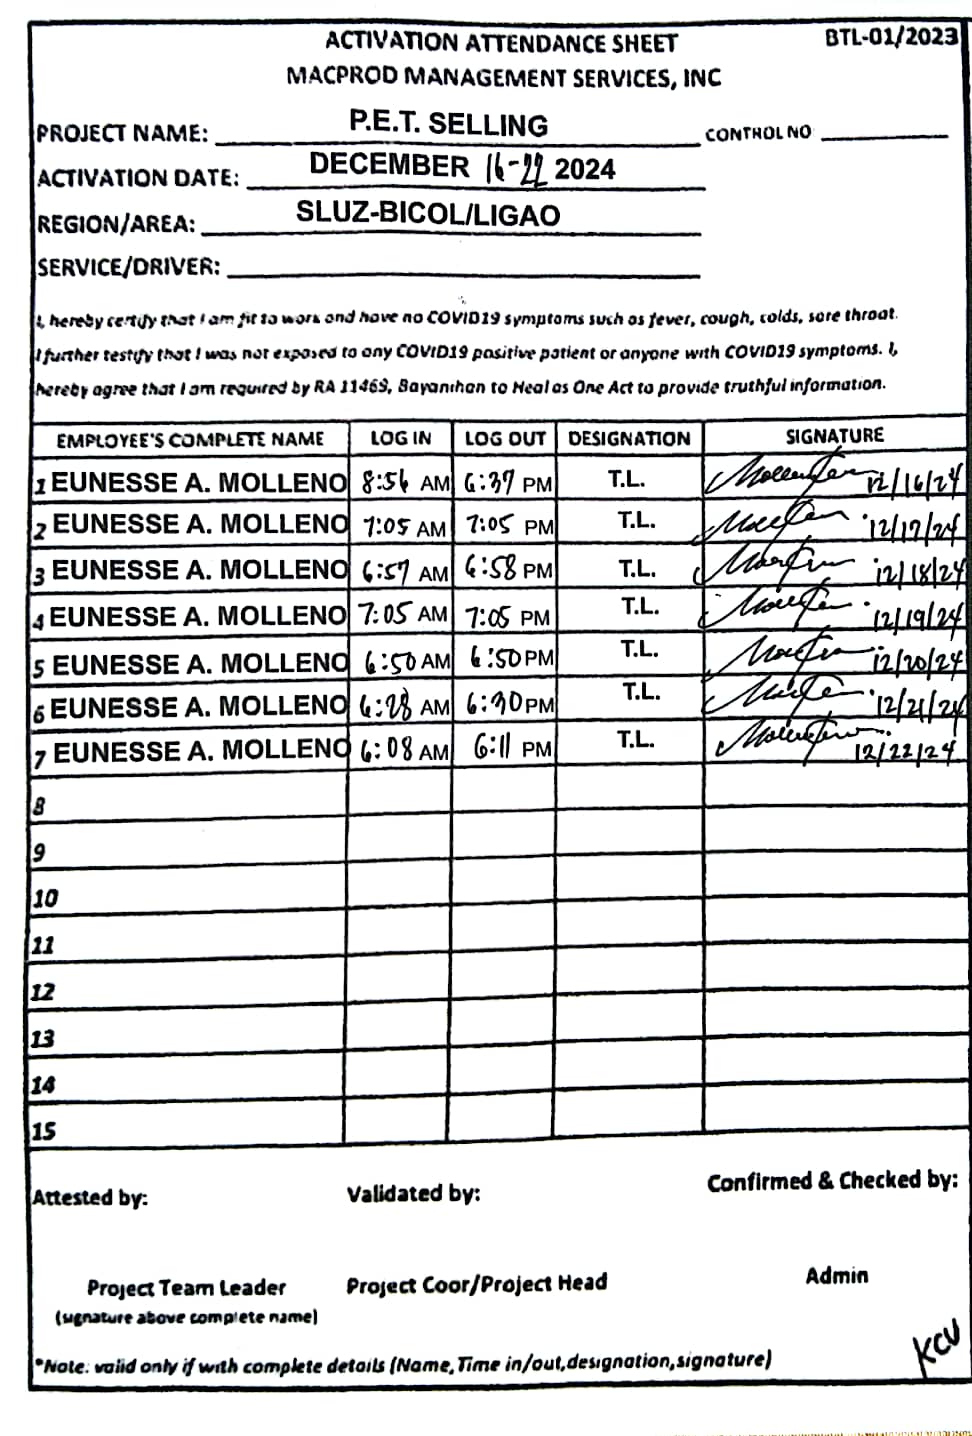 ACTIVATION ATTENDANCE SHEET BTL-01/2023
MACPROD MANAGEMENT SERVICES, INC
PROJECT NAME: P.E.T. SELLING CONTROL NO
ACTIVATION DATE: DECEMBER 16-22 2024
REGION/AREA: SLUZ-BICOL/LIGAO
SERVICE/DRIVER:
I, hereby certify that I am fit to work and have no COVID19 symptoms such as fever, cough, colds, sore throat.
I further testify that I was not exposed to any COVID19 positive patient or anyone with COVID19 symptoms. I,
hereby agree that I am required by RA 11469, Bayanihan to Heal as One Act to provide truthful information.
EMPLOYEE'S COMPLETE NAME LOG IN LOG OUT DESIGNATION SIGNATURE
1 EUNESSE A. MOLLENO 8:56 AM 6:37 PM T.L. 12/16/24
2 EUNESSE A. MOLLENO 7:05 AM 7:05 PM T.L. 12/17/24
3 EUNESSE A. MOLLENO 6:57 AM 6:58 PM T.L. 12/18/24
4 EUNESSE A. MOLLENO 7:05 AM 7:05 PM T.L. 12/19/24
5 EUNESSE A. MOLLENO 6:50 AM 6:50 PM T.L. 12/20/24
6 EUNESSE A. MOLLENO 6:28 AM 6:30 PM T.L. 12/21/24
7 EUNESSE A. MOLLENO 6:08 AM 6:11 PM T.L. 12/22/24
8
9
10
11
12
13
14
15
Attested by: Validated by: Confirmed & Checked by:
Project Team Leader Project Coor/Project Head Admin
(signature above complete name)
KCV
*Note: valid only if with complete details (Name,Time in/out,designation,signature)